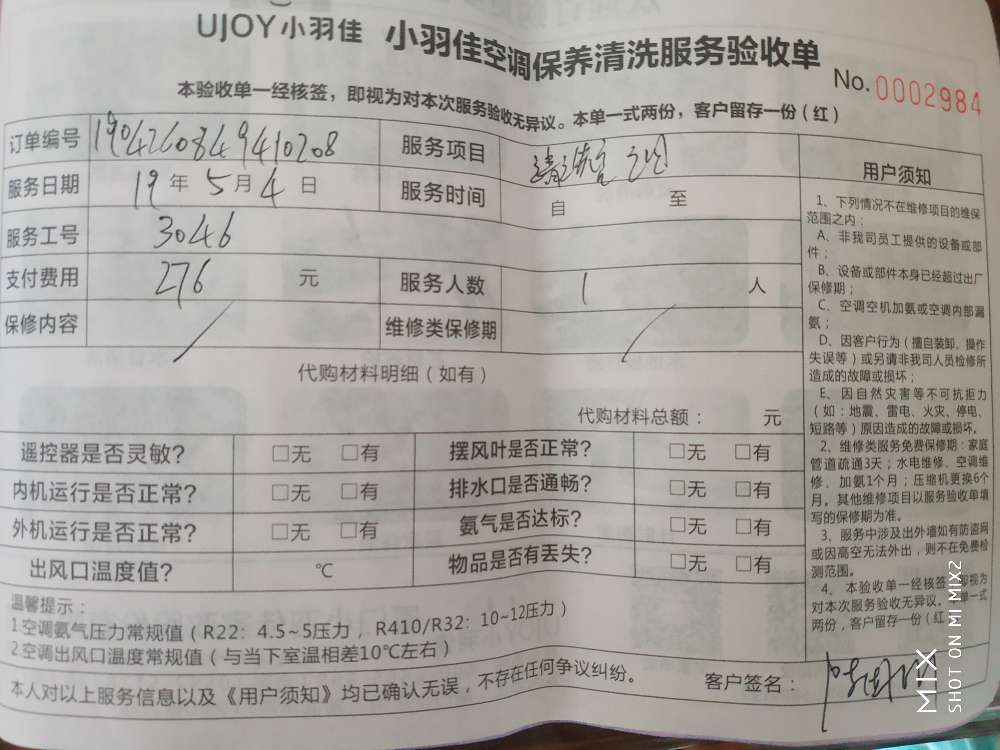 UJOY小羽佳 小羽佳空调保养清洗服务验收单
No. 0002984
本验收单一经核签，即视为对本次服务验收无异议。本单一式两份，客户留存一份（红）
订单编号 1904260849410208 服务项目
服务日期 19年5月4日 服务时间 自 至
服务工号 3046
支付费用 276 元 服务人数 1 人
保修内容 / 维修类保修期 /
代购材料明细（如有）
代购材料总额： 元
遥控器是否灵敏？ □无 □有 摆风叶是否正常？ □无 □有
内机运行是否正常？ □无 □有 排水口是否通畅？ □无 □有
外机运行是否正常？ □无 □有 氨气是否达标？ □无 □有
出风口温度值？ ℃ 物品是否有丢失？ □无 □有
温馨提示：
1.空调氨气压力常规值（R22：4.5~5压力，R410/R32：10~12压力）
2.空调出风口温度常规值（与当下室温相差10℃左右）
本人对以上服务信息以及《用户须知》均已确认无误，不存在任何争议纠纷。 客户签名：
用户须知
1、下列情况不在维修项目的维保
范围之内：
A、非我司员工提供的设备或部
件；
B、设备或部件本身已经超过出厂
保修期；
C、空调空机加氨或空调内部漏
氨；
D、因客户行为（擅自装卸、操作
失误等）或另请非我司人员检修所
造成的故障或损坏；
E、因自然灾害等不可抗拒力
（如：地震、雷电、火灾、停电、
短路等）原因造成的故障或损坏。
2、维修类服务免费保修期：家庭
管道疏通3天；水电维修、空调维
修、加氨1个月；压缩机更换6个
月。其他维修项目以服务验收单填
写的保修期为准。
3、服务中涉及出外墙如有防盗网
或因高空无法外出，则不在免费检
测范围。
4、本验收单一经核签 即视为
对本次服务验收无异议。 单一式
两份，客户留存一份（红
MIX
SHOT ON MI MIX2